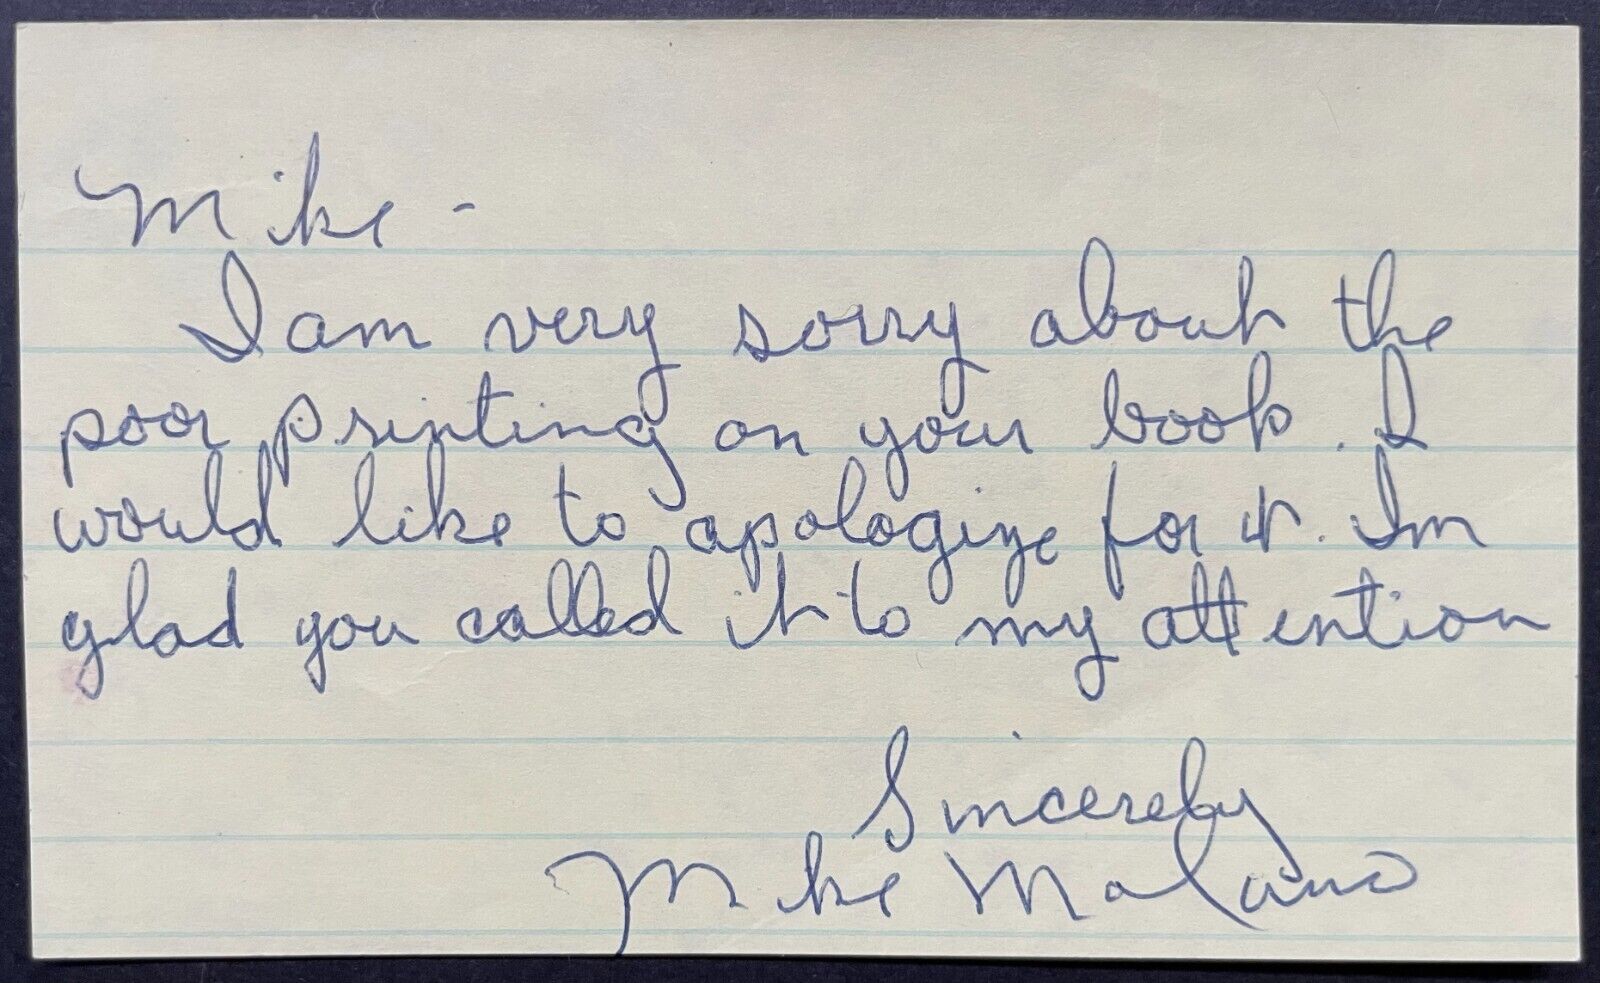 Mike -
I am very sorry about the
poor printing on your book. I
would like to apologize for it. Im
glad you called it to my attention
Sincerely
Mike